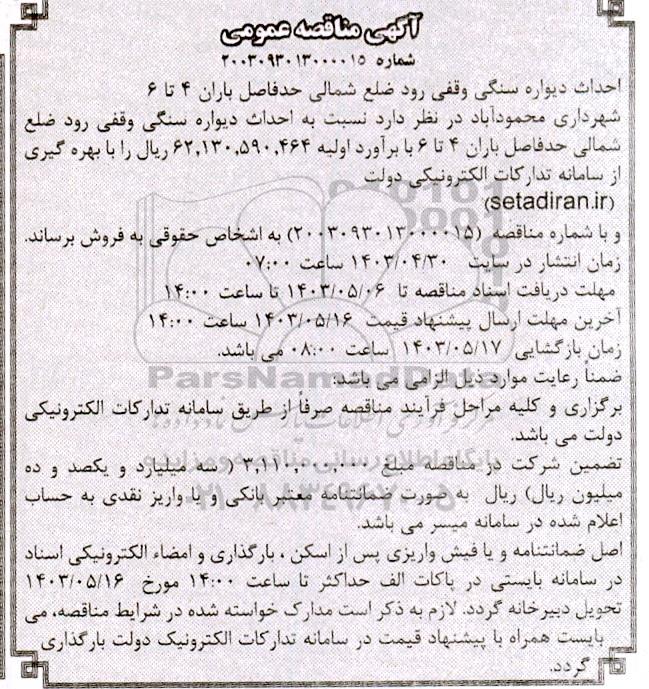 آگهی مناقصه عمومی
شماره ۲۰۰۳۰۹۳۰۱۳۰۰۰۰۱۵
احداث دیواره سنگی وقفی رود ضلع شمالی حدفاصل باران ۴ تا ۶
شهرداری محمودآباد در نظر دارد نسبت به احداث دیواره سنگی وقفی رود ضلع
شمالی حدفاصل باران ۴ تا ۶ با برآورد اولیه ۶۲,۱۳۰,۵۹۰,۴۶۴ ریال را با بهره گیری
از سامانه تدارکات الکترونیکی دولت
(setadiran.ir)
و با شماره مناقصه (۲۰۰۳۰۹۳۰۱۳۰۰۰۰۱۵) به اشخاص حقوقی به فروش برساند.
زمان انتشار در سایت ۱۴۰۳/۰۴/۳۰ ساعت ۰۷:۰۰
مهلت دریافت اسناد مناقصه تا ۱۴۰۳/۰۵/۰۶ تا ساعت ۱۴:۰۰
آخرین مهلت ارسال پیشنهاد قیمت ۱۴۰۳/۰۵/۱۶ ساعت ۱۴:۰۰
زمان بازگشایی ۱۴۰۳/۰۵/۱۷ ساعت ۰۸:۰۰ می باشد.
ParsNamadData
ضمناً رعایت موارد ذیل الزامی می باشد:
برگزاری و کلیه مراحل فرآیند مناقصه صرفاً از طریق سامانه تدارکات الکترونیکی
دولت می باشد.
پایگاه اطلاع رسانی مناقصه و مزایده
تضمین شرکت در مناقصه مبلغ ۳,۱۱۰,۰۰۰,۰۰۰ ( سه میلیارد و یکصد و ده
میلیون ریال) ریال به صورت ضمانتنامه معتبر بانکی و یا واریز نقدی به حساب
۰۲۱-۸۸۳۴۹۶۷۰-۵
اعلام شده در سامانه میسر می باشد.
اصل ضمانتنامه و یا فیش واریزی پس از اسکن ، بارگذاری و امضاء الکترونیکی اسناد
در سامانه بایستی در پاکات الف حداکثر تا ساعت ۱۴:۰۰ مورخ ۱۴۰۳/۰۵/۱۶
تحویل دبیرخانه گردد. لازم به ذکر است مدارک خواسته شده در شرایط مناقصه، می
بایست همراه با پیشنهاد قیمت در سامانه تدارکات الکترونیک دولت بارگذاری
گردد.